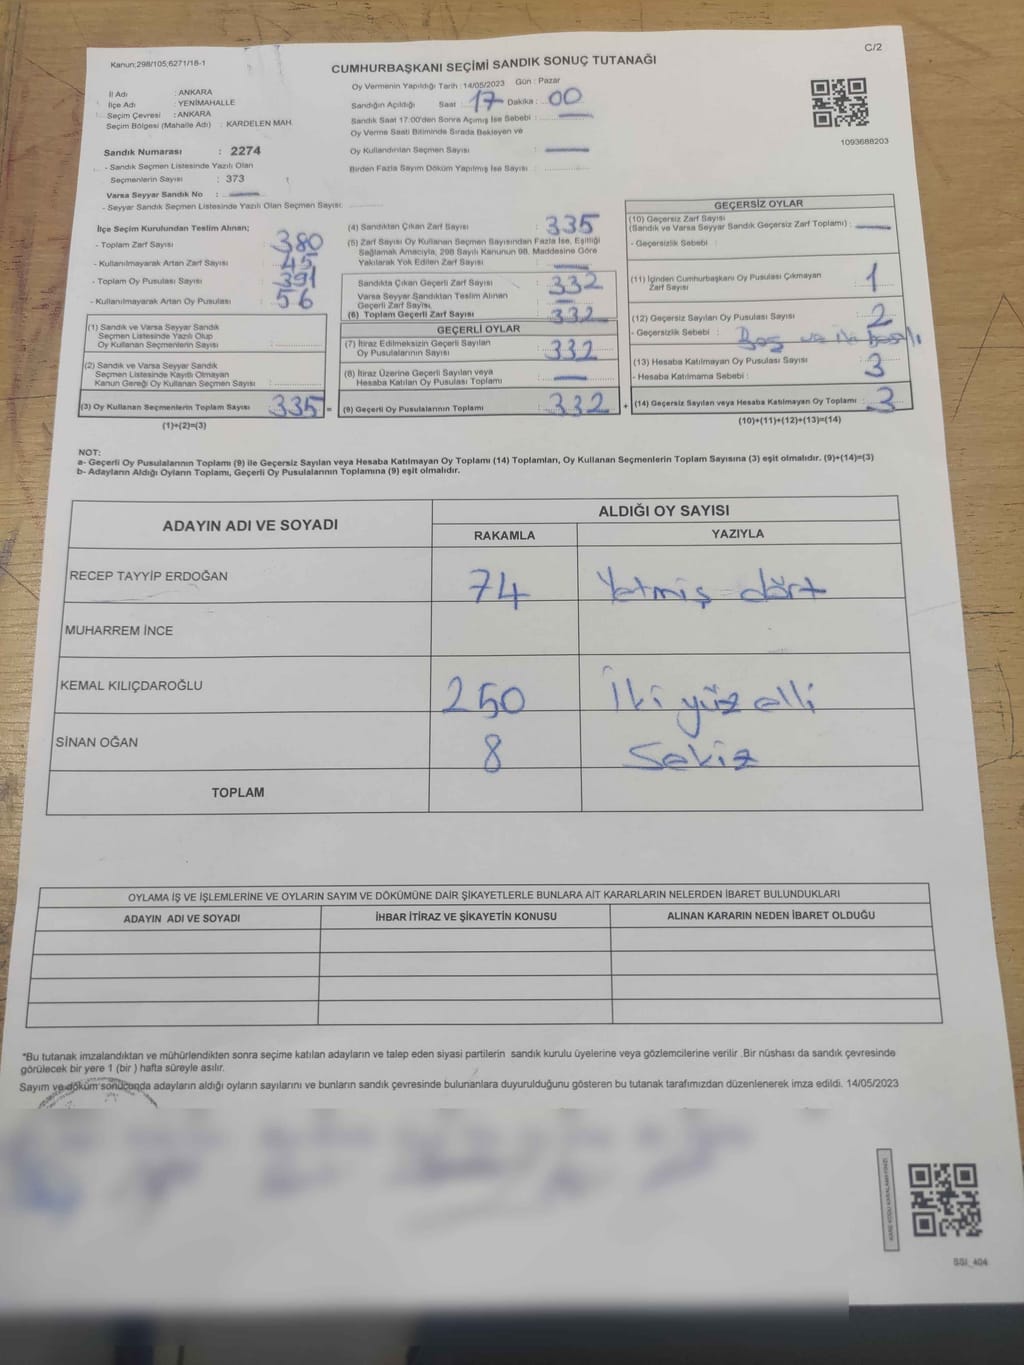 C/2
Kanun:298/105;6271/18-1
CUMHURBAŞKANI SEÇİMİ SANDIK SONUÇ TUTANAĞI
İl Adı : ANKARA
İlçe Adı : YENİMAHALLE
Seçim Çevresi : ANKARA
Seçim Bölgesi (Mahalle Adı) : KARDELEN MAH.
Sandık Numarası : 2274
- Sandık Seçmen Listesinde Yazılı Olan
Seçmenlerin Sayısı : 373
Varsa Seyyar Sandık No :
- Seyyar Sandık Seçmen Listesinde Yazılı Olan Seçmen Sayısı.
Oy Vermenin Yapıldığı Tarih : 14/05/2023 Gün : Pazar
Sandığın Açıldığı Saat : 17 Dakika : 00
Sandık Saat 17:00'den Sonra Açımış İse Sebebi :
Oy Verme Saati Bitiminde Sırada Bekleyen ve
Oy Kullandırılan Seçmen Sayısı :
Birden Fazla Sayım Döküm Yapılmış İse Sayısı :
1093688203
İlçe Seçim Kurulundan Teslim Alınan;
- Toplam Zarf Sayısı : 380
- Kullanılmayarak Artan Zarf Sayısı : 45
- Toplam Oy Pusulası Sayısı : 391
- Kullanılmayarak Artan Oy Pusulası : 56
(1) Sandık ve Varsa Seyyar Sandık
Seçmen Listesinde Yazılı Olup
Oy Kullanan Seçmenlerin Sayısı :
(2) Sandık ve Varsa Seyyar Sandık
Seçmen Listesinde Kayıtlı Olmayan
Kanun Gereği Oy Kullanan Seçmen Sayısı :
(3) Oy Kullanan Seçmenlerin Toplam Sayısı : 335 =
(1)+(2)=(3)
(4) Sandıktan Çıkan Zarf Sayısı : 335
(5) Zarf Sayısı Oy Kullanan Seçmen Sayısından Fazla İse, Eşitliği
Sağlamak Amacıyla, 298 Sayılı Kanunun 98. Maddesine Göre
Yakılarak Yok Edilen Zarf Sayısı :
Sandıkta Çıkan Geçerli Zarf Sayısı : 332
Varsa Seyyar Sandıktan Teslim Alınan
Geçerli Zarf Sayısı :
(6) Toplam Geçerli Zarf Sayısı : 332
GEÇERLİ OYLAR
(7) İtiraz Edilmeksizin Geçerli Sayılan
Oy Pusulalarının Sayısı : 332
(8) İtiraz Üzerine Geçerli Sayılan veya
Hesaba Katılan Oy Pusulası Toplamı :
(9) Geçerli Oy Pusulalarının Toplamı : 332 +
GEÇERSİZ OYLAR
(10) Geçersiz Zarf Sayısı
(Sandık ve Varsa Seyyar Sandık Geçersiz Zarf Toplamı) :
- Geçersizlik Sebebi :
(11) İçinden Cumhurbaşkanı Oy Pusulası Çıkmayan
Zarf Sayısı : 1
(12) Geçersiz Sayılan Oy Pusulası Sayısı : 2
- Geçersizlik Sebebi : Boş ve
(13) Hesaba Katılmayan Oy Pusulası Sayısı : 3
- Hesaba Katılmama Sebebi :
(14) Geçersiz Sayılan veya Hesaba Katılmayan Oy Toplamı : 3
(10)+(11)+(12)+(13)=(14)
NOT:
a- Geçerli Oy Pusulalarının Toplamı (9) ile Geçersiz Sayılan veya Hesaba Katılmayan Oy Toplamı (14) Toplamları, Oy Kullanan Seçmenlerin Toplam Sayısına (3) eşit olmalıdır. (9)+(14)=(3)
b- Adayların Aldığı Oyların Toplamı, Geçerli Oy Pusulalarının Toplamına (9) eşit olmalıdır.
ADAYIN ADI VE SOYADI
ALDIĞI OY SAYISI
RAKAMLA YAZIYLA
RECEP TAYYİP ERDOĞAN 74 Yetmiş dört
MUHARREM İNCE
KEMAL KILIÇDAROĞLU 250 İki yüz elli
SİNAN OĞAN 8 Sekiz
TOPLAM
OYLAMA İŞ VE İŞLEMLERİNE VE OYLARIN SAYIM VE DÖKÜMÜNE DAİR ŞİKAYETLERLE BUNLARA AİT KARARLARIN NELERDEN İBARET BULUNDUKLARI
ADAYIN ADI VE SOYADI İHBAR İTİRAZ VE ŞİKAYETİN KONUSU ALINAN KARARIN NEDEN İBARET OLDUĞU
*Bu tutanak imzalandıktan ve mühürlendikten sonra seçime katılan adayların ve talep eden siyasi partilerin sandık kurulu üyelerine veya gözlemcilerine verilir .Bir nüshası da sandık çevresinde
görülecek bir yere 1 (bir ) hafta süreyle asılır.
Sayım ve döküm sonucunda adayların aldığı oyların sayılarını ve bunların sandık çevresinde bulunanlara duyurulduğunu gösteren bu tutanak tarafımızdan düzenlenerek imza edildi. 14/05/2023
SSI_404